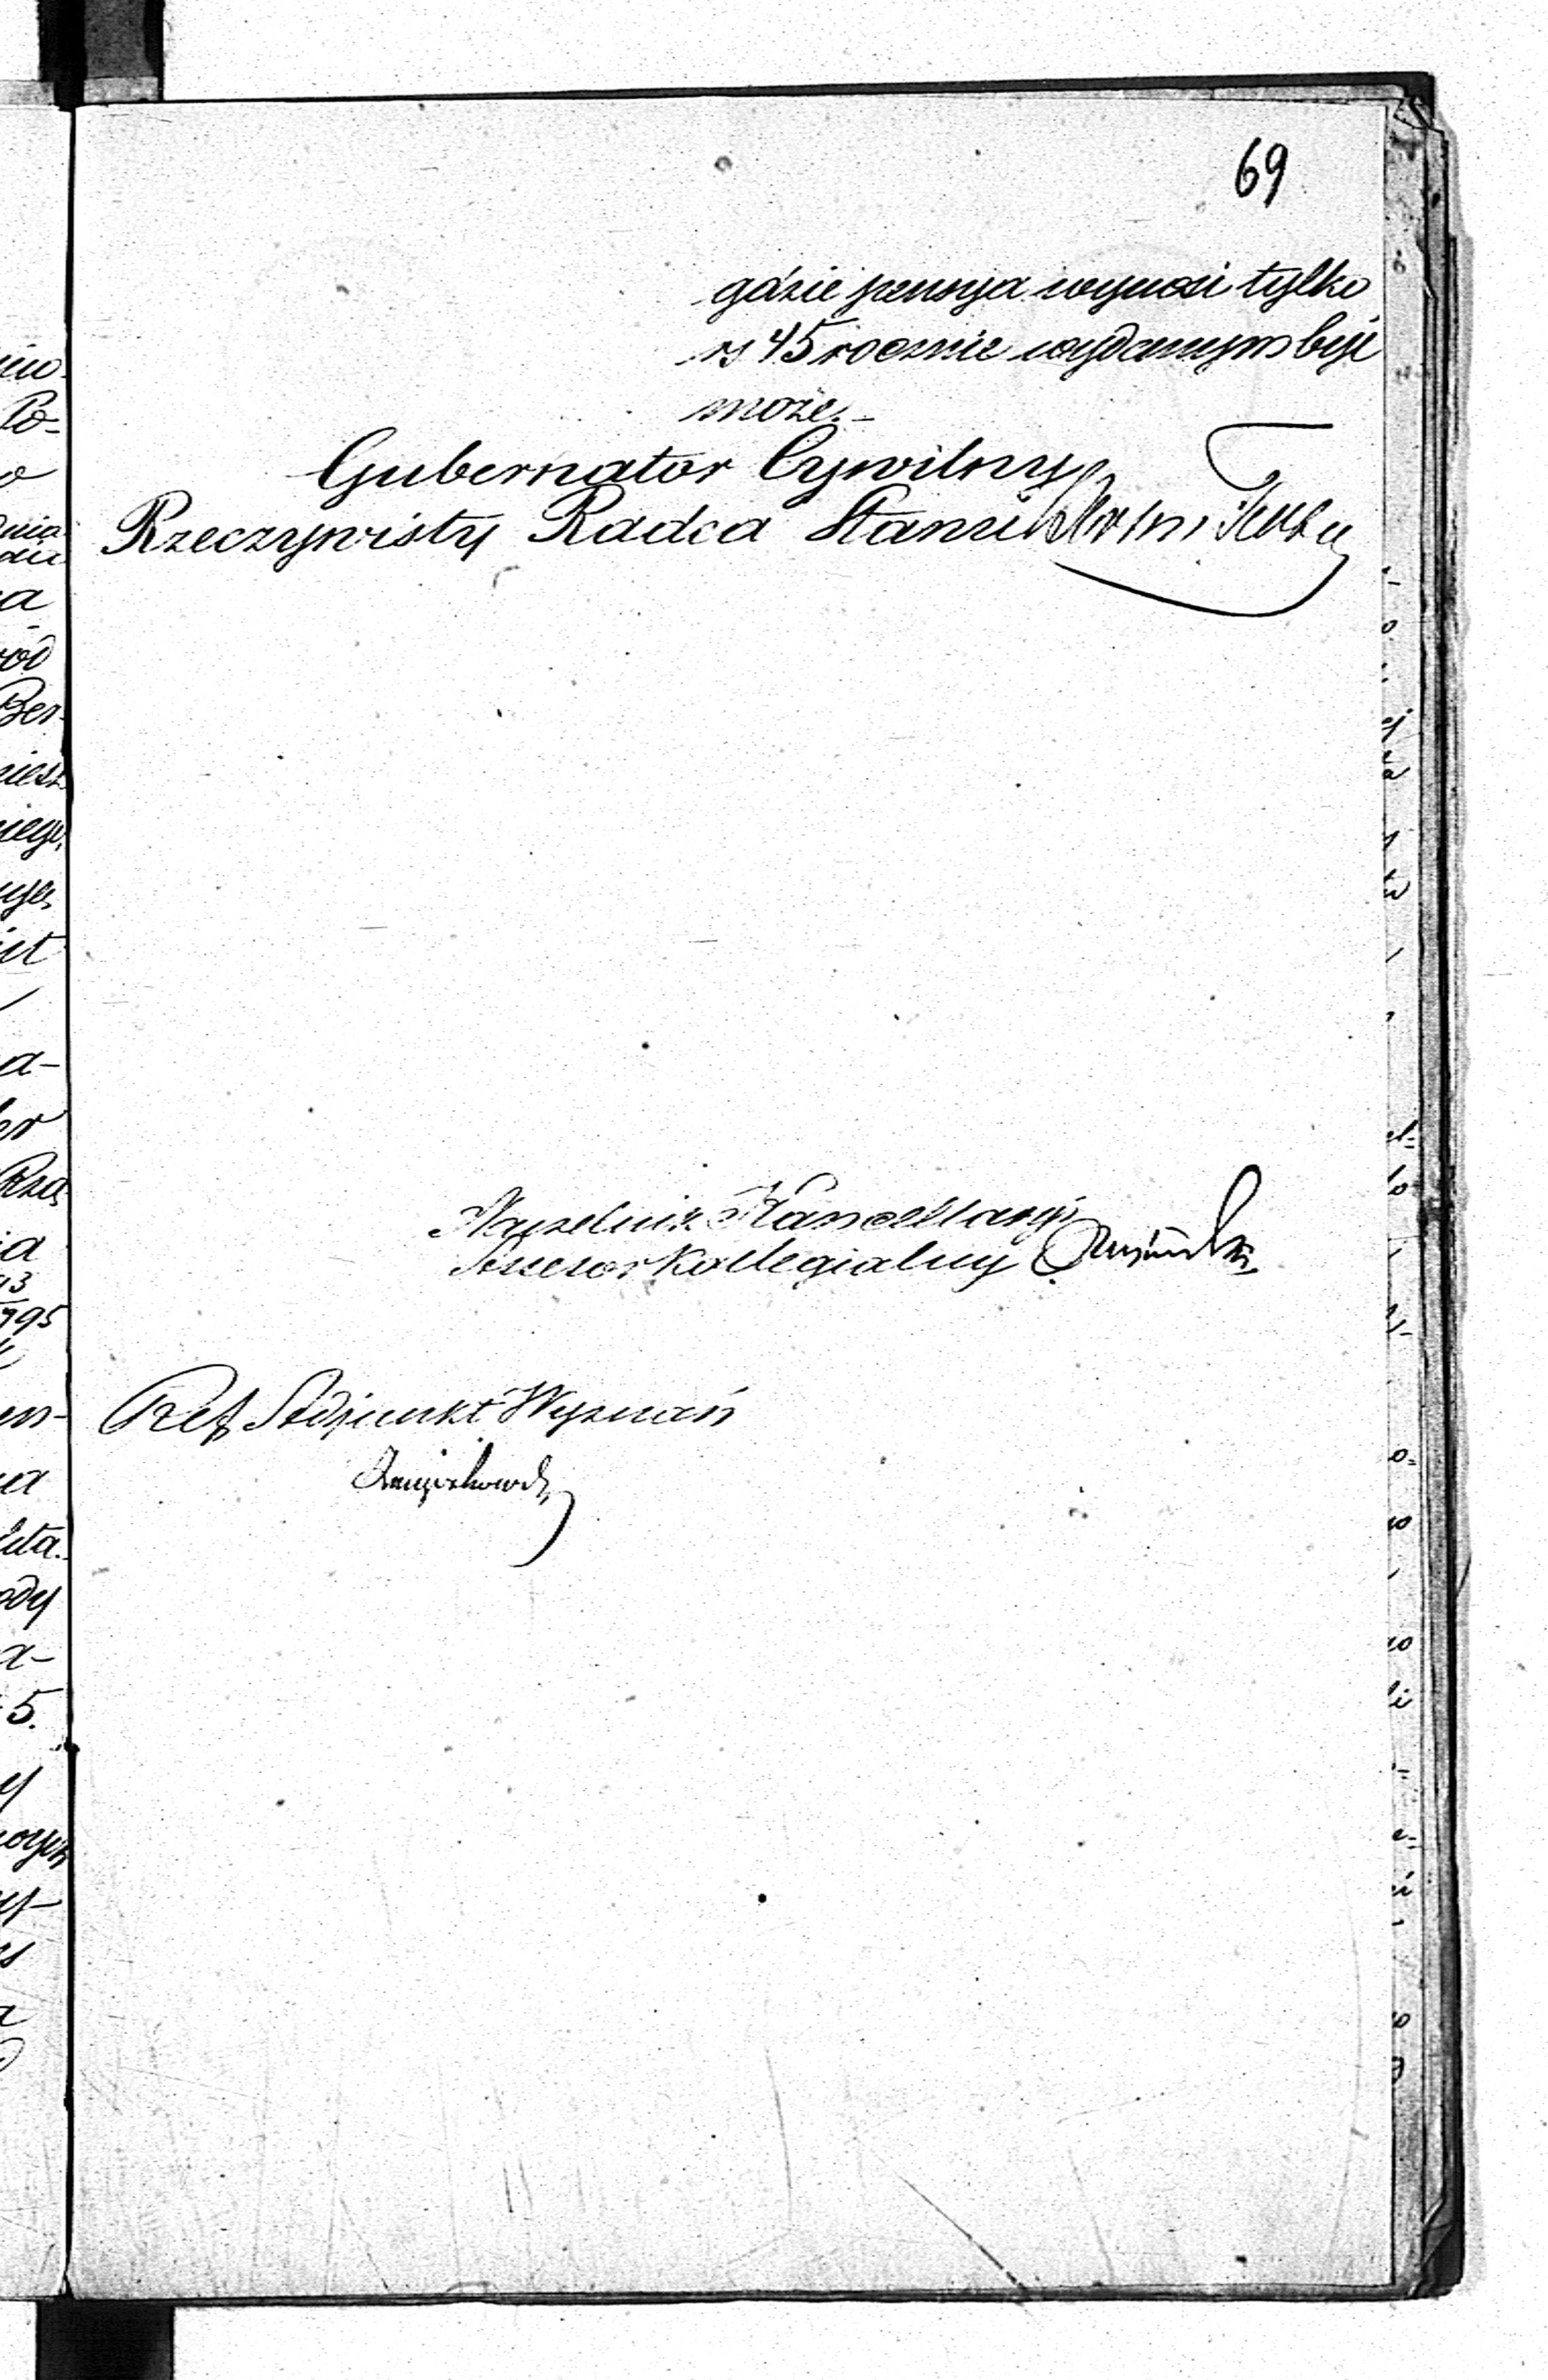 69
gdzie pensya wynosi tylko
rs 45 rocznie wydanym być
może.-
Gubernator Cywilny
Rzeczywisty Radca Stanu
Naczelnik Kancellaryi
Assessor Kollegialny
Ref. Adjunkt Wyznań